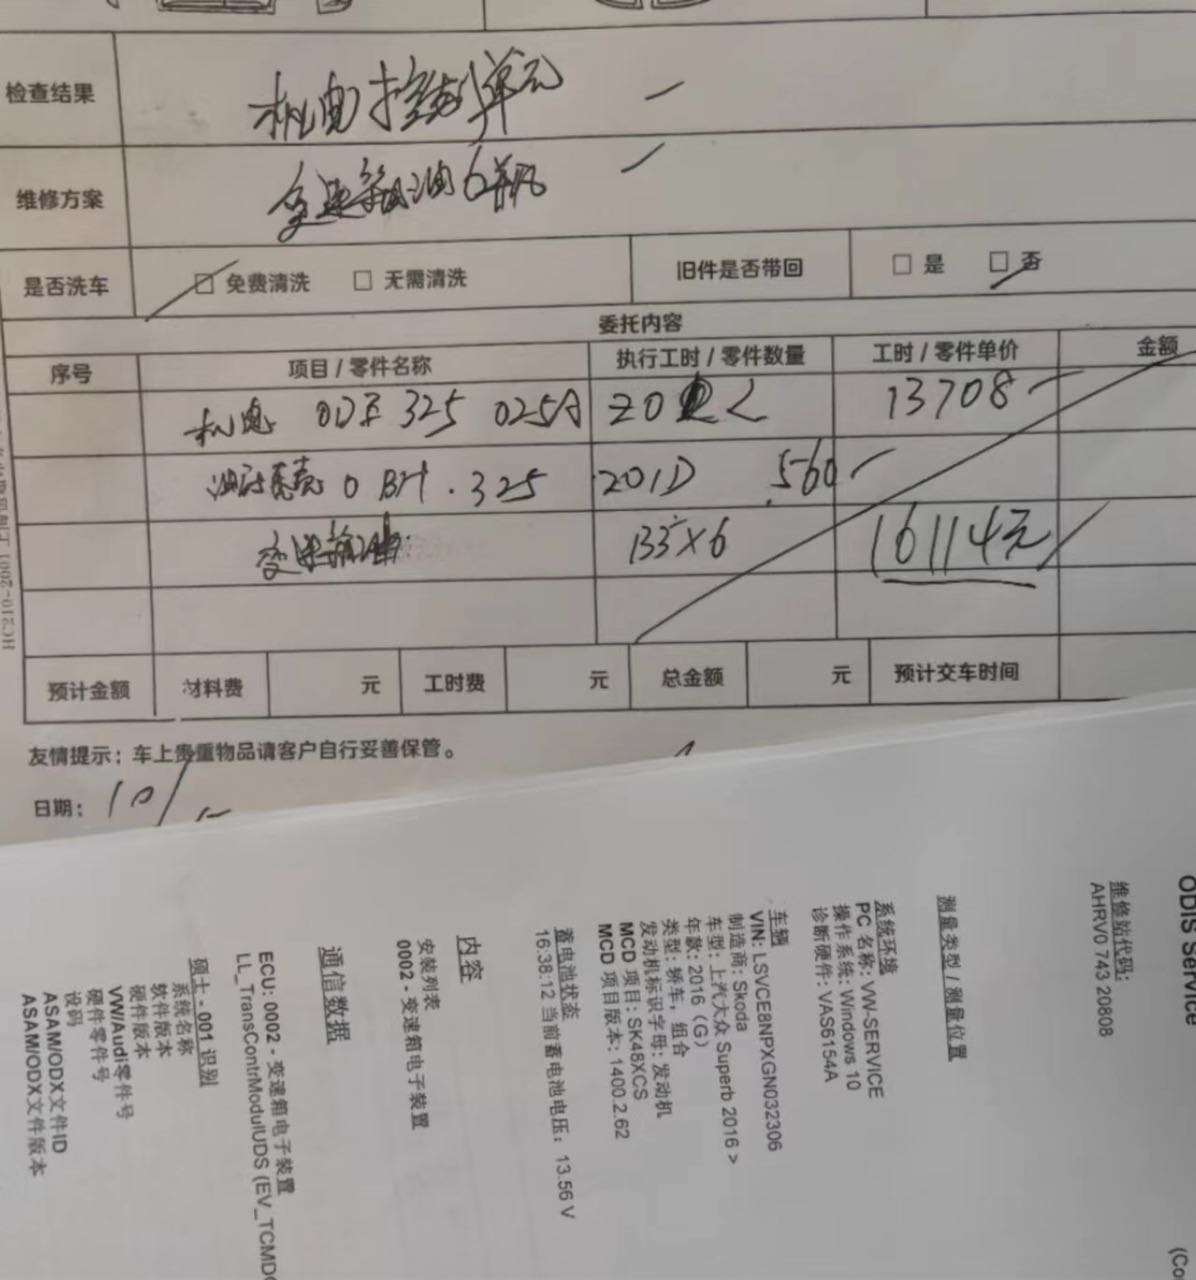 检查结果 机电控制单元
维修方案 变速箱油6瓶
是否洗车 □ 免费清洗 □ 无需清洗 旧件是否带回 □ 是 □ 否
委托内容
序号 项目 / 零件名称 执行工时 / 零件数量 工时 / 零件单价 金额
机电 0DE 325 025A Z0 13708
0BH.325 201D 560
变速箱油 135×6 16114元
预计金额 材料费 元 工时费 元 总金额 元 预计交车时间
友情提示：车上贵重物品请客户自行妥善保管。
日期：10/
ODIS Service
维修站代码：
AHRV0 743 20808
测量类型 / 测量位置
系统环境
PC 名称: VW-SERVICE
操作系统: Windows 10
诊断硬件: VAS6154A
车辆
VIN: LSVCE8NPXGN032306
制造商: Skoda
车型: 上汽大众 Superb 2016 >
年款: 2016 (G)
类型: 轿车，组合
发动机标识字母: 发动机
MCD 项目: SK48XCS
MCD 项目版本: 1400.2.62
蓄电池状态
16:38:12 当前蓄电池电压：13.56 V
内容
安装列表
0002 - 变速箱电子装置
通信数据
ECU: 0002 - 变速箱电子装置
LL_TransContrModulUDS (EV_TCMD
硕士 - 001 识别
系统名称
软件版本
硬件版本
VW/Audi零件号
硬件零件号
设码
ASAM/ODX文件ID
ASAM/ODX文件版本
(Co